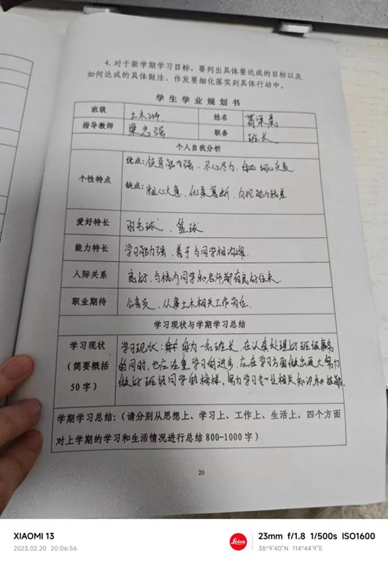 4.对于新学期学习目标，要列出具体要达成的目标以及
如何达成的具体做法，作发要细化落实到具体行动中。
学生学业规划书
班级 土木 姓名
指导教师 栗忠强 职务 班长
个人自我分析
个性特点
优点：领导能力强、尽心尽力、
缺点：粗心大意、优柔寡断、
爱好特长 羽毛球、篮球
能力特长 学习能力强、善于与同学相沟通
人际关系 良好，与校内同学和老师都有良好往来
职业期待 公务员、从事土木相关工作岗位
学习现状与学期学习总结
学习现状
（简要概括
50字）
学习现状：身为一名班长，在认真处理好班级事务
的同时，也应注重学习的进步，应在学习方面做出更大努力
做好班级同学的榜样，努力学习专业相关知识和技能
学期学习总结：（请分别从思想上、学习上、工作上、生活上，四个方面
对上学期的学习和生活情况进行总结 800-1000字）
20
XIAOMI 13
2023.02.20 20:06:56
Leica
23mm f/1.8 1/500s ISO1600
38°9'40"N 114°44'9"E